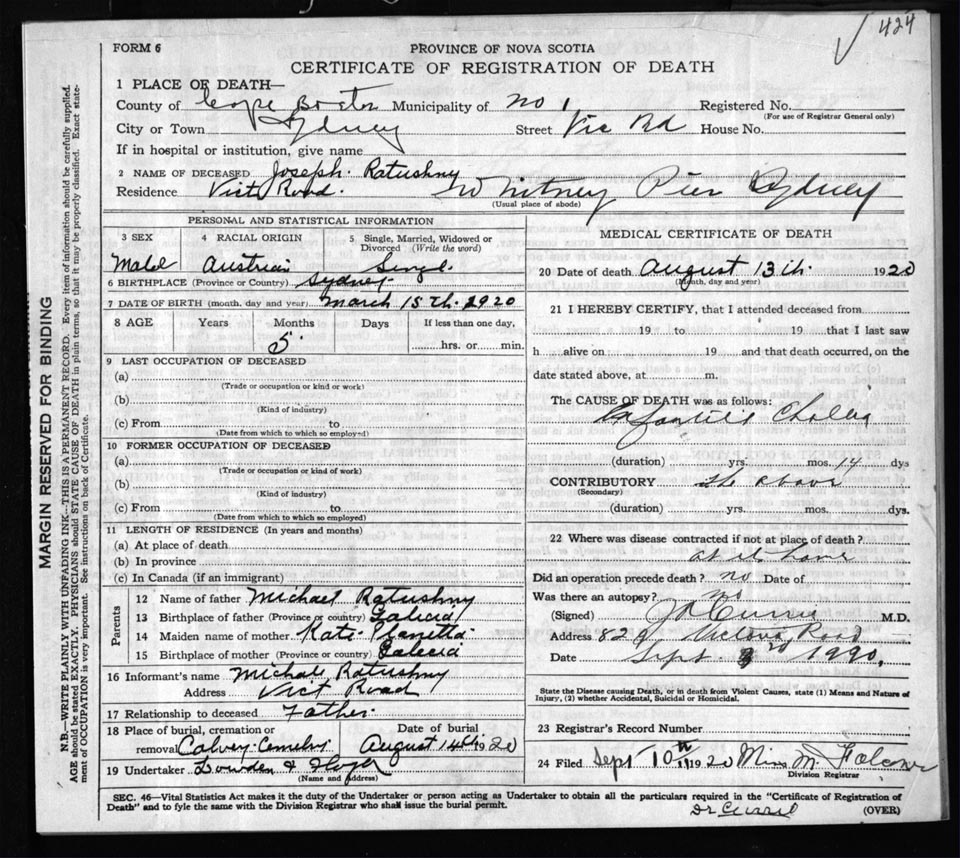 424
FORM 6
PROVINCE OF NOVA SCOTIA
CERTIFICATE OF REGISTRATION OF DEATH
MARGIN RESERVED FOR BINDING
N.B.—WRITE PLAINLY WITH UNFADING INK—THIS IS A PERMANENT RECORD. Every item of information should be carefully supplied.
AGE should be stated EXACTLY. PHYSICIANS should STATE CAUSE OF DEATH in plain terms, so that it may be properly classified. Exact state-
ment of OCCUPATION is very important. See instructions on back of Certificate.
1 PLACE OF DEATH—
County of Cape Breton Municipality of No 1 Registered No.
(For use of Registrar General only)
City or Town Sydney Street Vic Rd House No.
If in hospital or institution, give name
2 NAME OF DECEASED Joseph Ratushny
Residence Vict Road. Whitney Pier Sydney
(Usual place of abode)
PERSONAL AND STATISTICAL INFORMATION
3 SEX 4 RACIAL ORIGIN 5 Single, Married, Widowed or
Divorced (Write the word)
Male Austrian
6 BIRTHPLACE (Province or Country) Sydney
7 DATE OF BIRTH (month, day and year) March 15th 1920
8 AGE Years Months Days If less than one day,
5 hrs. or min.
9 LAST OCCUPATION OF DECEASED
(a)
(Trade or occupation or kind of work)
(b)
(Kind of industry)
(c) From to
(Date from which to which so employed)
10 FORMER OCCUPATION OF DECEASED
(a)
(Trade or occupation or kind of work)
(b)
(Kind of industry)
(c) From to
(Date from which to which so employed)
11 LENGTH OF RESIDENCE (In years and months)
(a) At place of death
(b) In province
(c) In Canada (if an immigrant)
Parents
12 Name of father Michael Ratushny
13 Birthplace of father (Province or country) Galicia
14 Maiden name of mother Kate
15 Birthplace of mother (Province or country) Galecia
16 Informant's name Michael Ratushny
Address Vict Road
17 Relationship to deceased Father
18 Place of burial, cremation or Date of burial
removal August 14th 1920
19 Undertaker
(Name and address)
MEDICAL CERTIFICATE OF DEATH
20 Date of death August 13th. 1920
(Month, day and year)
21 I HEREBY CERTIFY, that I attended deceased from
19 to 19 that I last saw
h alive on 19 and that death occurred, on the
date stated above, at m.
The CAUSE OF DEATH was as follows:
Cholera
(duration) yrs. mos. 14 dys
CONTRIBUTORY the above
(Secondary)
(duration) yrs. mos. dys.
22 Where was disease contracted if not at place of death?
at its home
Did an operation precede death? no Date of
Was there an autopsy? no
(Signed) Currie M.D.
Address 829 Victoria Road
Date Sept.
State the Disease causing Death, or in death from Violent Causes, state (1) Means and Nature of
Injury, (2) whether Accidental, Suicidal or Homicidal.
23 Registrar's Record Number
24 Filed Sept 10th 1920 Miss M Falconer
Division Registrar
SEC. 46—Vital Statistics Act makes it the duty of the Undertaker or person acting as Undertaker to obtain all the particulars required in the "Certificate of Registration of
Death" and to fyle the same with the Division Registrar who shall issue the burial permit.
Dr Currie (OVER)